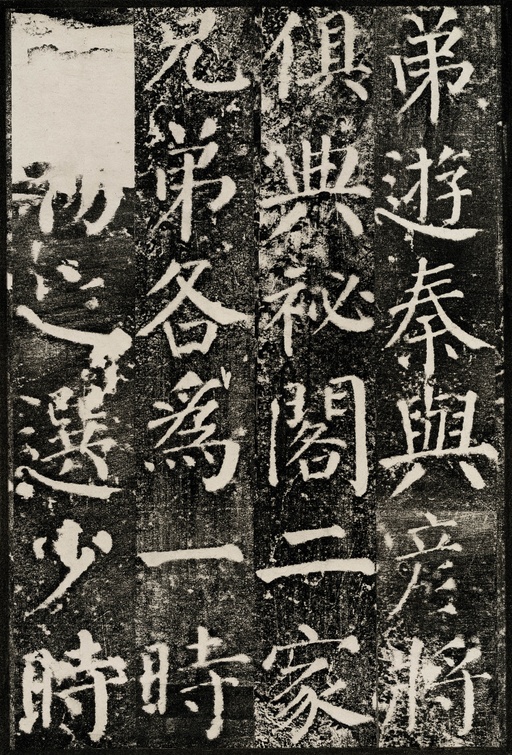 弟遊秦與彥將
俱典祕閣二家
兄弟各爲一時
之選少時